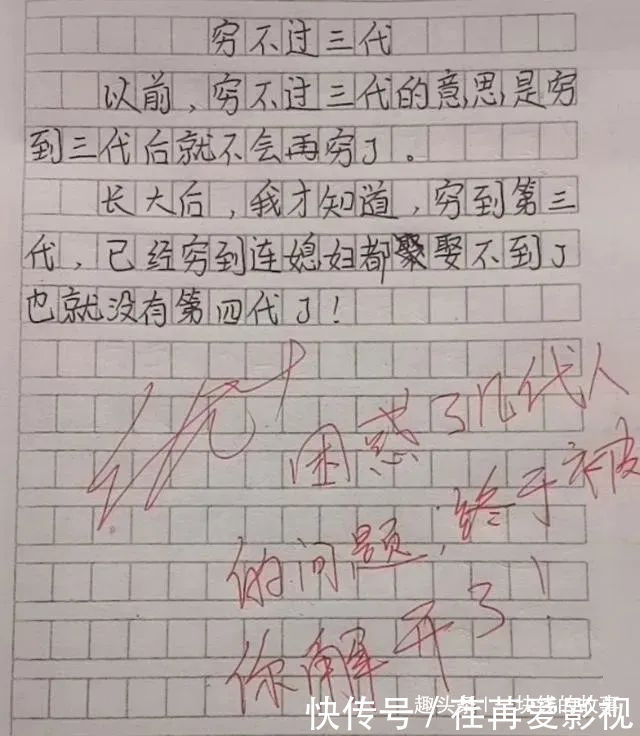 穷不过三代
以前,穷不过三代的意思是穷
到三代后就不会再穷了。
长大后,我才知道,穷到第三
代,已经穷到连媳妇都娶不到了
也就没有第四代了!
优+
困惑了几代人
的问题,终于被
你解开了!
快传号/在再爱影视